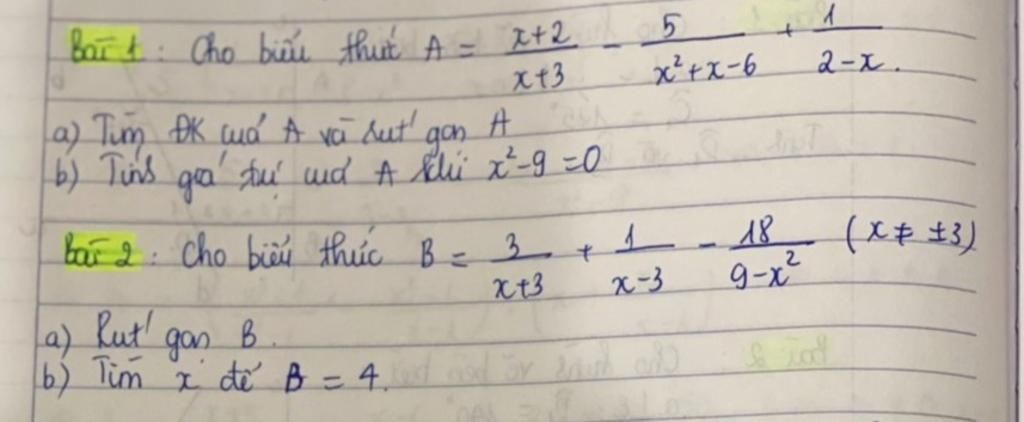 Bài 1 : Cho biểu thức A = \frac{x+2}{x+3} - \frac{5}{x^2+x-6} + \frac{1}{2-x}.
a) Tìm ĐK của A và rút gọn A
b) Tính giá trị của A khi x² - 9 = 0
Bài 2 : Cho biểu thức B = \frac{3}{x+3} + \frac{1}{x-3} - \frac{18}{9-x^2} (x ≠ ±3)
a) Rút gọn B.
b) Tìm x để B = 4.